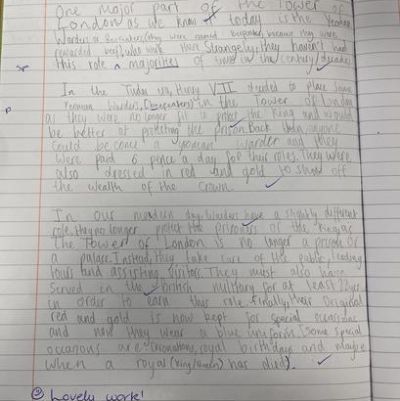 One major part of the Tower of
London as we know it today is the Yeoman
Warders or Beefeaters, they were named beefeaters because they were
rewarded beef who work there. Strangely, they haven't had
sp this role majorities of time in the century/decades
In the Tudor era, Henry VII decided to place some
p Yeoman Warders, (Beefeaters) in the Tower of London
as they were no longer fit to protect the King and would
be better at protecting the prison. Back then, anyone
could become a yeoman warder and they
were paid 6 pence a day for their roles. They were
also dressed in red and gold to show off
the wealth of the Crown.
In our modern day, Warders have a slightly different
role, they no longer protect the prisoners of the King as
the Tower of London is no longer a prison or
a palace. Instead, they take care of the public, leading
tours and assisting visitors. They must also have
served in the british military for at least 22yrs
in order to earn this role. Finally, their original
red and gold is now kept for special occasions
and now they wear a blue uniform. (Some special
occasions are coronations, royal birthdays and maybe
when a royal (king/queen) has died).
Lovely work!